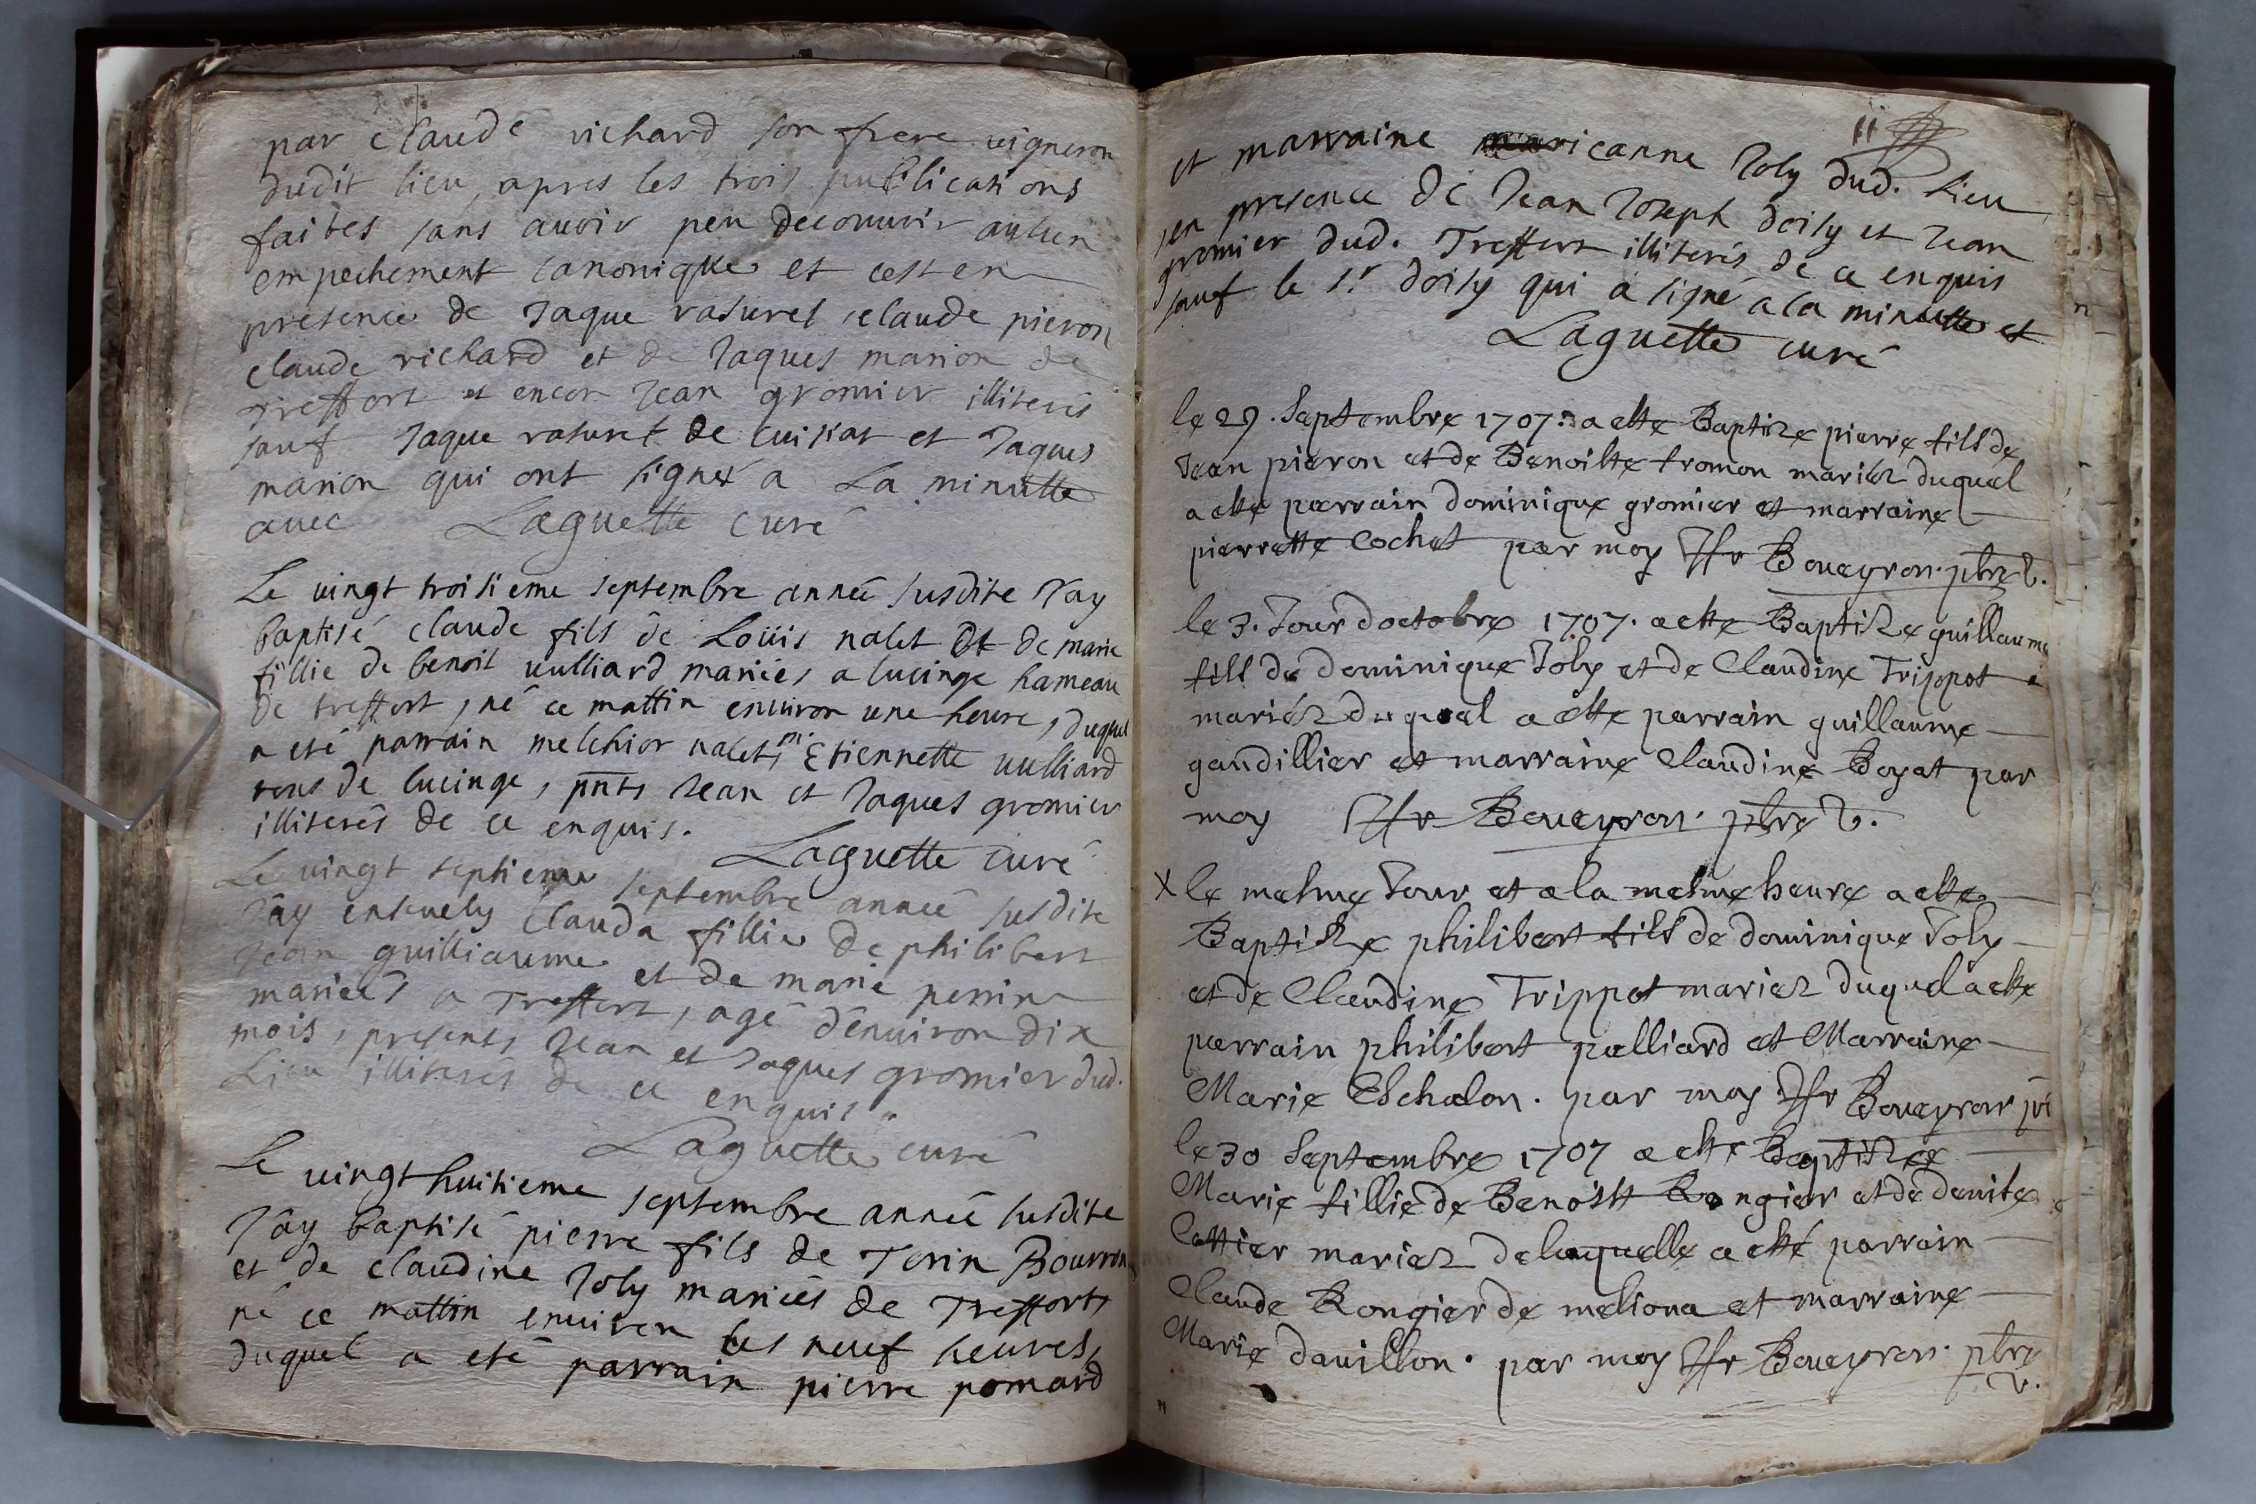 par claude richard son frere vigneron
dudit lieu, apres les trois publications
faites sans avoir peu decouvrir aulcun
empechement canonique et cest en
presence de Jaque rasurel, claude pieron
claude richard et de Jaques marion de
treffort et encor Jean gromier illiterés
sauf Jaque rasurel de cuisiat et Jaques
marion qui ont signéz a La minutte
avec Laguette curé
Le vingt troisieme septembre année susdite J'ay
baptisé claude fils de Loüis nalet et de marie
fillie de benoit vulliard mariés a lucinge hameau
de treffort, né ce mattin environ une heure, duquel
a eté parrain melchior nalet, m. Etiennette vulliard
tous de lucinge, pnts Jean et Jaques gromier
illiterés de ce enquis.
Laguette curé
Le vingt septieme septembre année susdite
J'ay ensevely Clauda fillie de philibert
Jean guilliaume et de marie perrin
mariés a Treffort, agé d'environ dix
mois, presents Jean et Jaques gromier dud.
Lieu illiterés de ce enquis.
Laguette curé
Le vingt huitieme septembre année susdite
J'ay baptisé pierre fils de Torin Bourron
et de claudine Joly mariés de Treffort,
né ce mattin environ les neuf heures,
duquel a eté parrain pierre pomard
11
et marraine marieanne Joly dud. Lieu
en presence de Jean Joseph doisy et Jean
gromier dud. Treffort illiterés de ce enquis
sauf le Sr. doisy qui a signé a la minutte et
Laguette curé
le 29. Septembre 1707. a este Baptize pierre fils de
Jean pieron et de Benoiste fromon mariéz duquel
a este parrain dominique gromier et marraine
pierrette Cochet par moy Boueyron. pbre v.
le 3. Jour doctobre 1707. a este Baptize guillaume
fils de dominique Joly et de Claudine Trippot
mariéz duquel a este parrain guillaume
gaudillier et marraine Claudine Boyat par
moy Boueyron. pbre v.
X le mesme Jour et a la mesme heure a este
Baptize philibert fils de dominique Joly
et de Claudine Trippot mariez duquel a este
parrain philibert palliard et Marraine
Marie Eschalon. par moy Boueyron
le 30 Septembre 1707 a este Baptizee
Marie fillie de Benoist Rongier et de denite
Cottier mariez de laquelle a esté parrain
Claude Rongier de meliona et marraine
Marie davillon. par moy Boueyron. pbre
v.